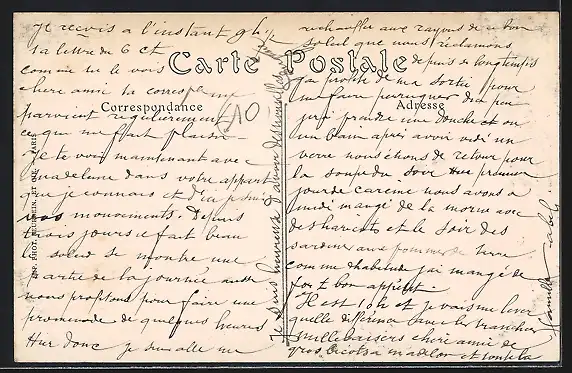 je recois a l'instant 9h½
ta lettre du 6 et
comme tu le vois
chere amie ta corresp me
parvient regulierement
ce qui me fait plaisir
Je te vois maintenant avec
madeleine dans votre appart
que je connais et d'ici je suis
vos mouvements. Depuis
trois jours il fait beau
le soleil se montre une
partie de la journée aussi
nous profitons pour faire une
promenade de quelques heures
Hier donc je suis allé me
Carte Postale
Correspondance
Adresse
410
IMP. PHOT. NEURDEIN ET CIE PARIS
rechauffer aux rayons de ce bon
soleil que nous reclamons
depuis si longtemps
j'ai profité de ma sortie pour
me faire perruquer et un peu
puis prendre une douche et ou
un bain apres avoir vidé un
verre nous étions de retour pour
la soupe du soir Hier premier
jour de careme nous avons a
midi mangé de la morue avec
des haricots et le soir des
sardines aux pommes de terre
comme d'habitude j'ai mangé de
fort bon appétit.
Il est 10h et je vais me laver
quelle différence avec les tranchées
mille baisers chere amie de
gros bicots a madelon et toute la
famille
Je suis heureux d'avoir des nouvelles de